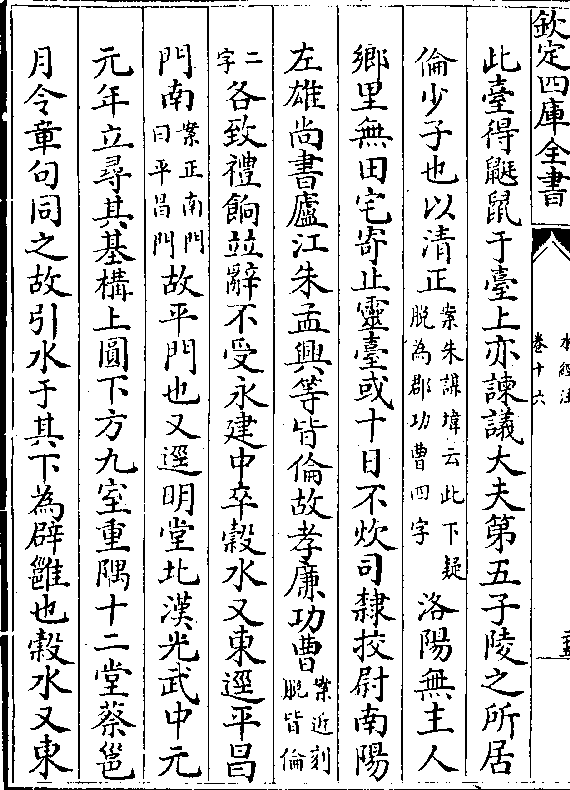 欽定四庫全書
水經注
卷十六
此臺得鼮鼠于臺上亦諫議大夫第五子陵之所居
倫少子也以清正案朱謀㙔云此下疑脫為郡功曹四字洛陽無主人
鄉里無田宅寄止靈臺或十日不炊司隸挍尉南陽
左雄尚書廬江朱孟興等皆倫故孝廉功曹案近刻脫皆倫
二字各致禮餉並辭不受永建中卒穀水又東逕平昌
門南案正南門曰平昌門故平門也又逕明堂北漢光武中元
元年立尋其基構上圓下方九室重隅十二堂蔡邕
月令章句同之故引水于其下為辟雝也穀水又東